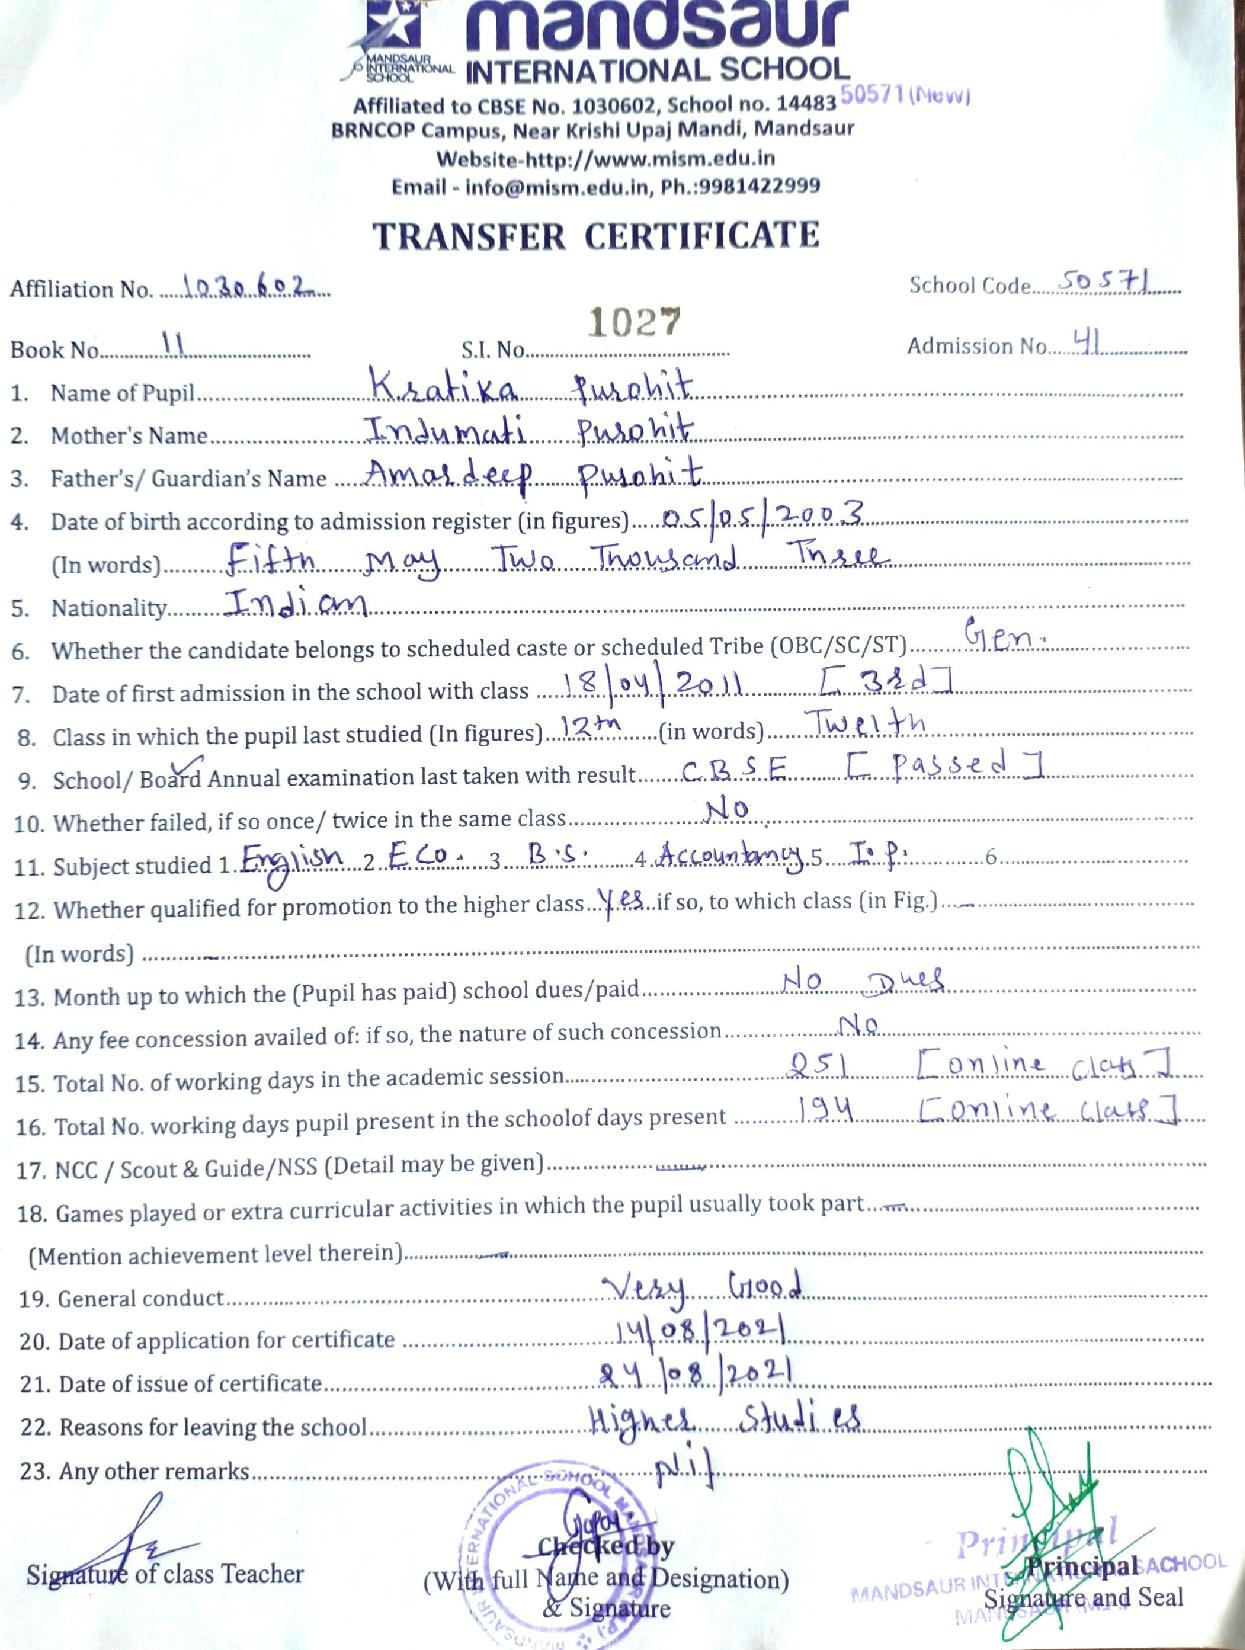 mandsaur
MANDSAUR
INTERNATIONAL
SCHOOL
INTERNATIONAL SCHOOL
Affiliated to CBSE No. 1030602, School no. 14483 50571(New)
BRNCOP Campus, Near Krishi Upaj Mandi, Mandsaur
Website-http://www.mism.edu.in
Email - info@mism.edu.in, Ph.:9981422999
TRANSFER CERTIFICATE
Affiliation No. 1030602 School Code 50571
Book No. 11 S.I. No. 1027 Admission No. 41
1. Name of Pupil Kratika Purohit
2. Mother's Name Indumati Purohit
3. Father's/ Guardian's Name Amardeep Purohit
4. Date of birth according to admission register (in figures) 05/05/2003
(In words) Fifth May Two Thousand Three
5. Nationality Indian
6. Whether the candidate belongs to scheduled caste or scheduled Tribe (OBC/SC/ST) Gen.
7. Date of first admission in the school with class 18/04/2011 [3rd]
8. Class in which the pupil last studied (In figures) 12th (in words) Twelth
9. School/ Board Annual examination last taken with result CBSE [Passed]
10. Whether failed, if so once/ twice in the same class No
11. Subject studied 1. English 2. Eco. 3. B.S. 4. Accountancy 5. I.P. 6.
12. Whether qualified for promotion to the higher class Yes if so, to which class (in Fig.) -
(In words) -
13. Month up to which the (Pupil has paid) school dues/paid No Dues
14. Any fee concession availed of: if so, the nature of such concession No
15. Total No. of working days in the academic session 251 [online class]
16. Total No. working days pupil present in the schoolof days present 194 [online class]
17. NCC / Scout & Guide/NSS (Detail may be given) -
18. Games played or extra curricular activities in which the pupil usually took part -
(Mention achievement level therein) -
19. General conduct Very Good
20. Date of application for certificate 14/08/2021
21. Date of issue of certificate 24/08/2021
22. Reasons for leaving the school Higher Studies
23. Any other remarks Nil
Signature of class Teacher
Checked by
(With full Name and Designation)
& Signature
Principal
MANDSAUR INTERNATIONAL SACHOOL
Principal
Signature and Seal